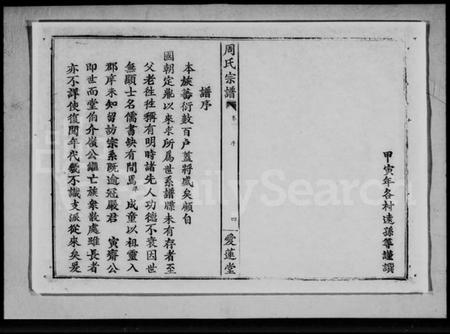 甲寅年各村遠孫等謹譔
周氏宗譜 卷一 序 四 愛蓮堂
譜序
本族蕃衍數百戶蓋將盛矣顧自
國朝定鼎以來求所爲世系譜牒未有存者至
父老往往稱有明時諸先人功德不衰因世
無顯士名儒書缺有間焉 成童以祖童入
郡庠未知留訪宗系旣逾冠嚴君 寅齋公
卽世而堂伯介嶺公繼亡族衆散處雖長者
亦不譯使復閱年代數不識支派從來矣爰
FamilySearch